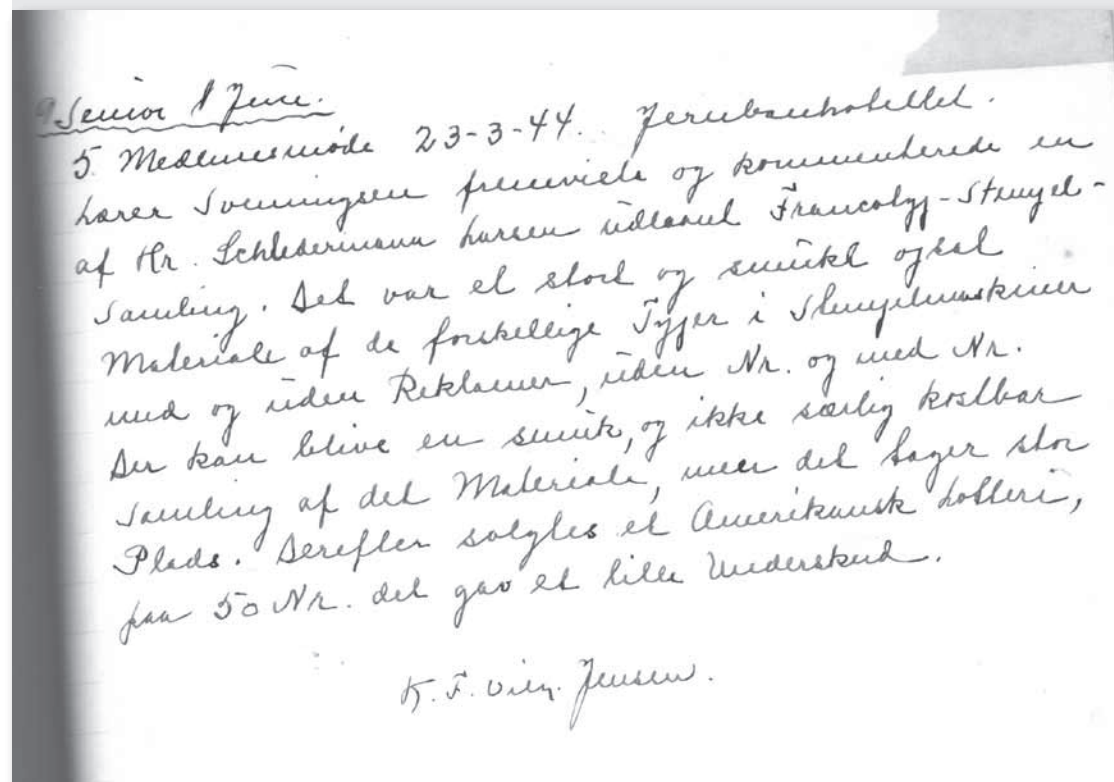 9 Senior 1 June.
5. Medlemsmøde 23-3-44. Jernbanehotellet.
Lærer Svenningsen fremviste og kommenterede en
af Hr. Schledermann Larsen udlaant Francotyp-Stempel-
samling. Det var et stort og smukt opsat
Materiale af de forskellige Typer i Stempelmaskiner
med og uden Reklamer, uden Nr. og med Nr.
Der kan blive en smuk, og ikke særlig kostbar
samling af det Materiale, men det tager stor
Plads. Derefter solgtes et Amerikansk Lotteri,
paa 50 Nr. det gav et lille Underskud.
K. F. Jensen.